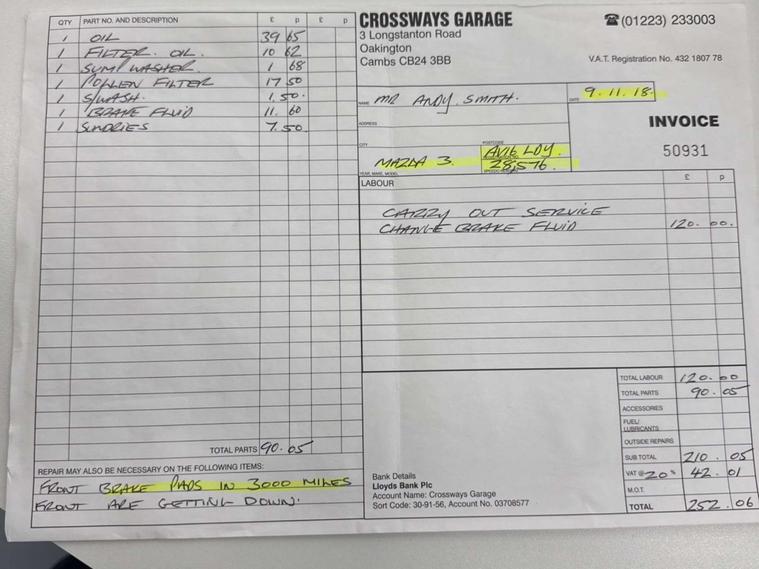 QTY PART NO. AND DESCRIPTION £ p £ p
1 OIL 39 65
1 FILTER. OIL. 10 62
1 SUMP WASHER. 1 68
1 POLLEN FILTER 17 50
1 S/WASH. 1.50.
1 BRAKE FLUID 11. 60
1 SUNDRIES 7.50.
TOTAL PARTS 90.05
REPAIR MAY ALSO BE NECESSARY ON THE FOLLOWING ITEMS:
FRONT BRAKE PADS IN 3000 MILES
FRONT ARE GETTING DOWN.
CROSSWAYS GARAGE
3 Longstanton Road
Oakington
Cambs CB24 3BB
☎(01223) 233003
V.A.T. Registration No. 432 1807 78
NAME MR ANDY. SMITH.
DATE 9.11.18.
ADDRESS
INVOICE
50931
CITY
POSTCODE
AV16 LDY.
MAZDA 3. 28,576.
YEAR, MAKE, MODEL
LABOUR £ p
CARRY OUT SERVICE
CHANGE BRAKE FLUID 120. 00.
TOTAL LABOUR 120.00
TOTAL PARTS 90.05
ACCESSORIES
FUEL/
LUBRICANTS
OUTSIDE REPAIRS
SUB TOTAL 210.05
VAT @ 20% 42.01
M.O.T.
TOTAL 252.06
Bank Details
Lloyds Bank Plc
Account Name: Crossways Garage
Sort Code: 30-91-56, Account No. 03708577